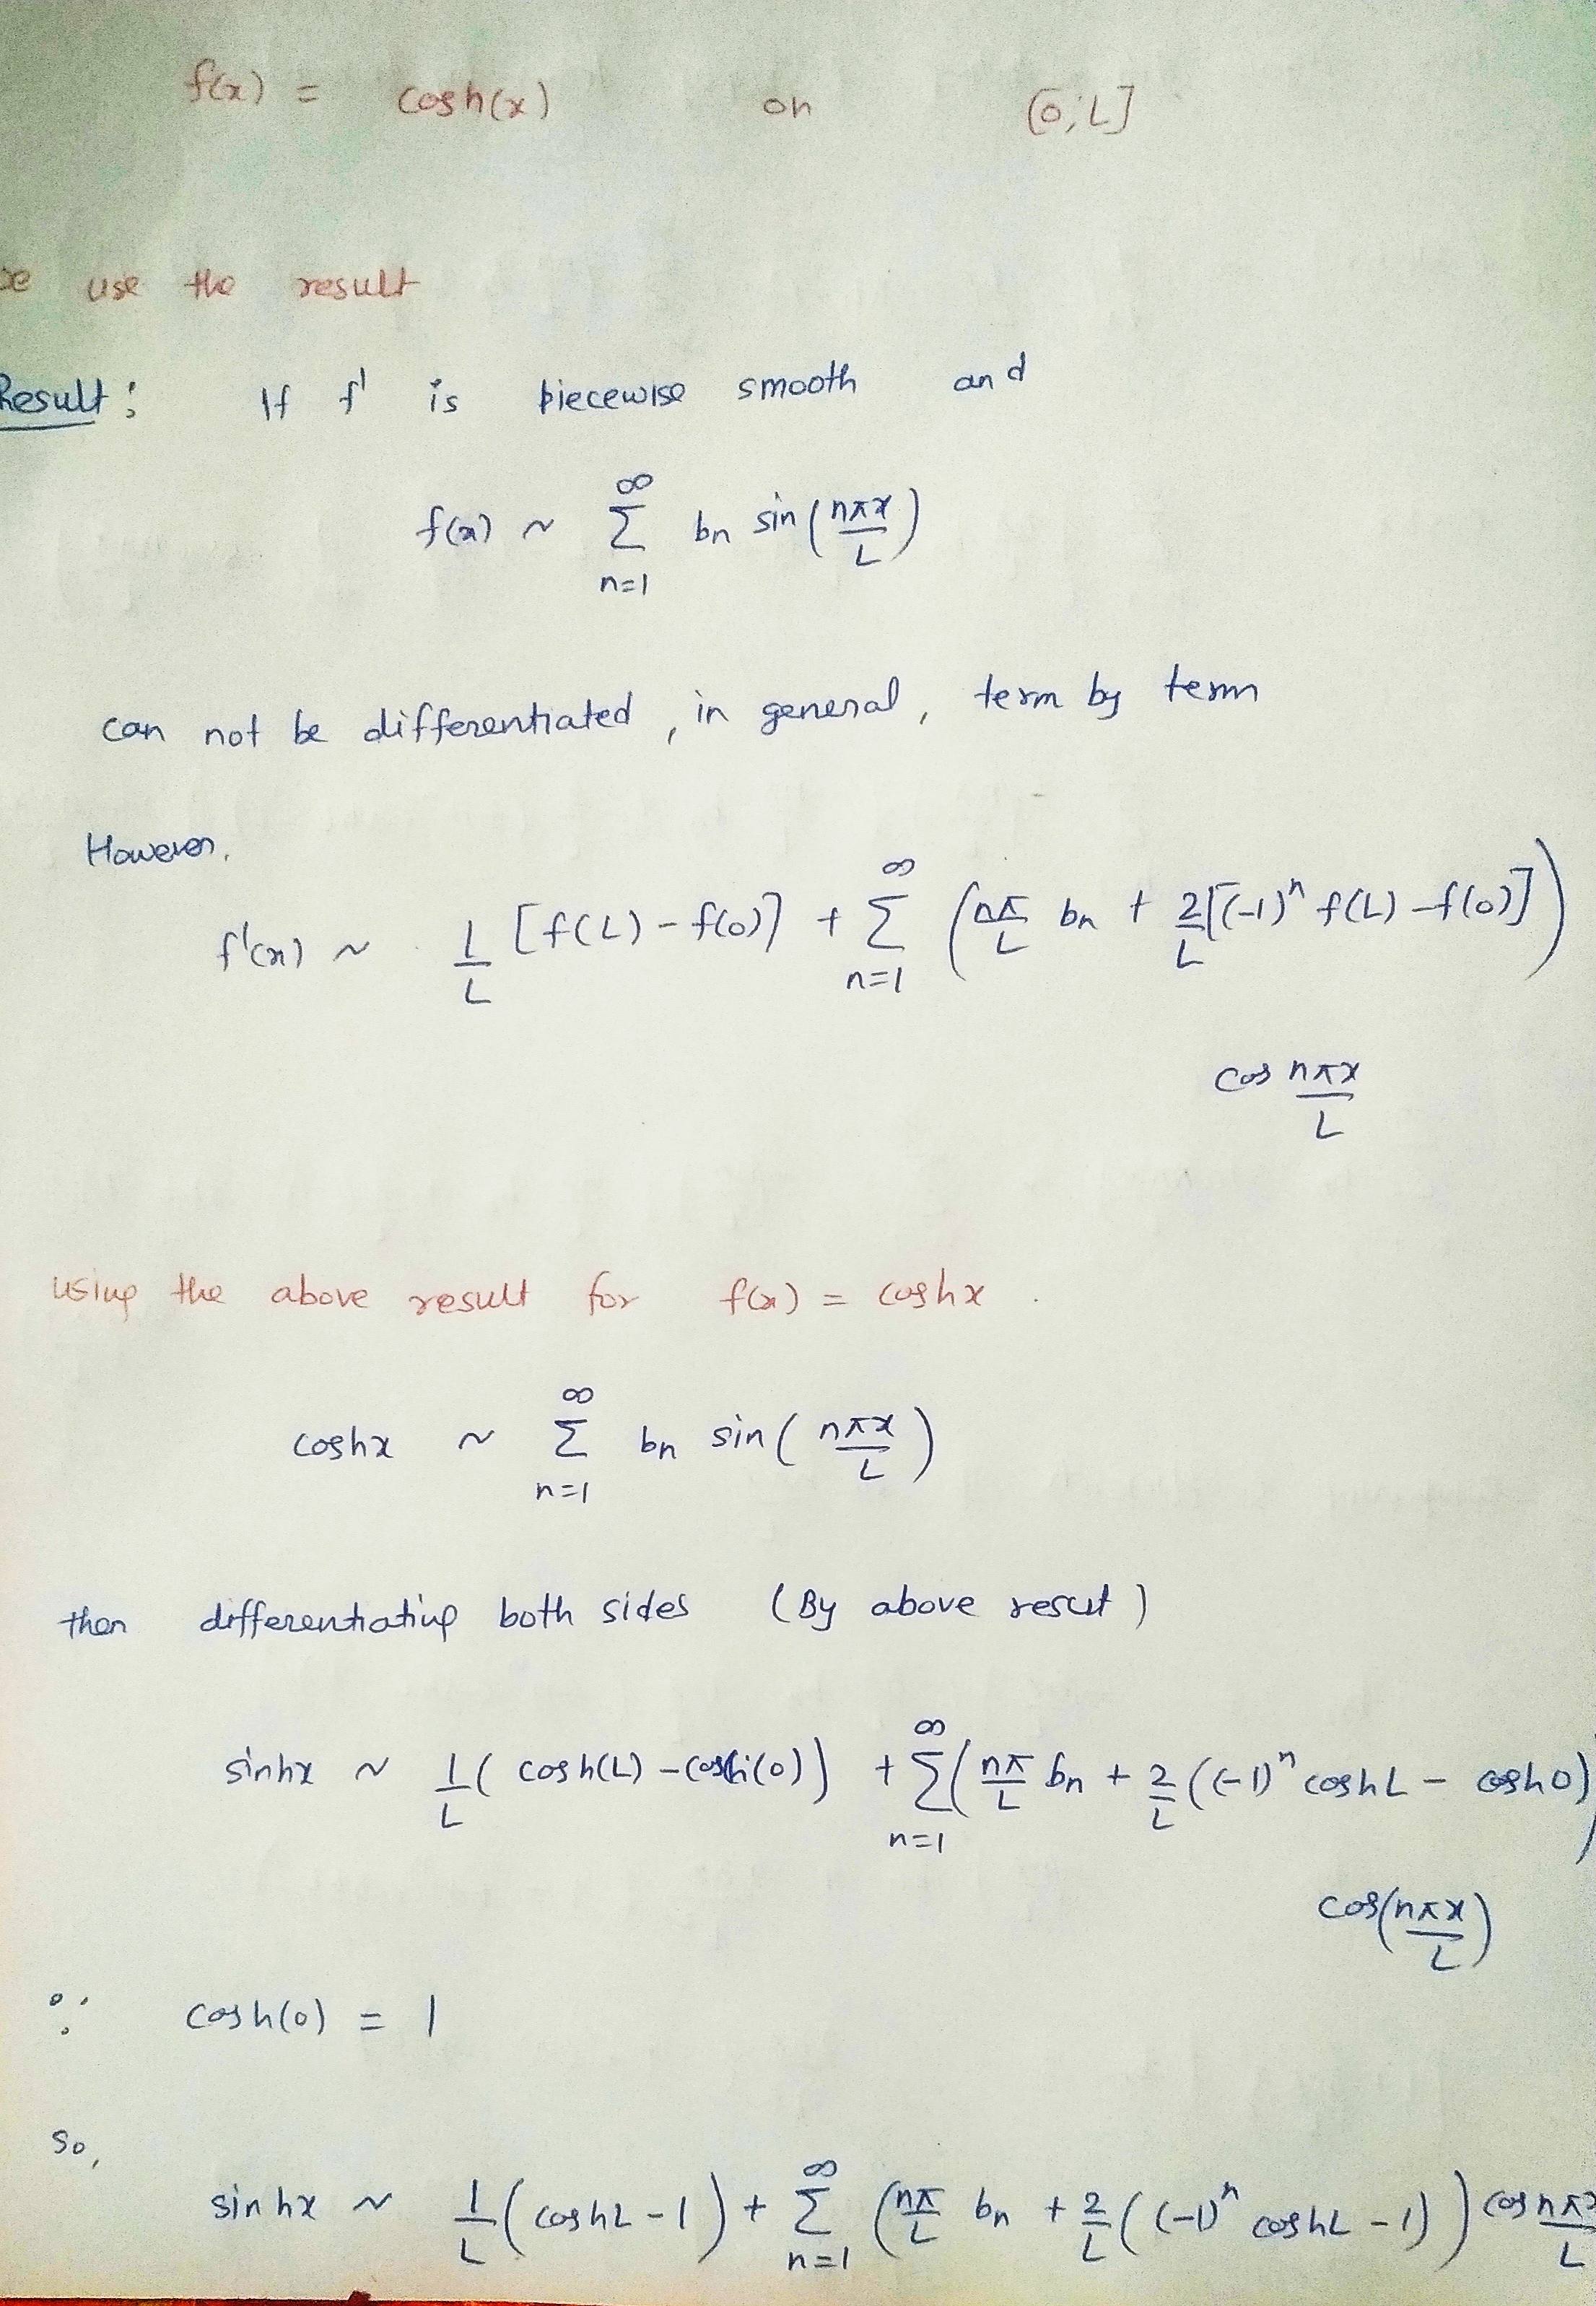 f(x) = cosh(x) on [0, L]
use the result
Result: If f' is piecewise smooth and
f(x) ~ ∞∑n=1 bn sin(nπx/L)
can not be differentiated, in general, term by term
However,
f'(x) ~ 1/L [f(L) - f(0)] + ∞∑n=1 (nπ/L bn + 2/L[(-1)^n f(L) - f(0)])
cos nπx/L
using the above result for f(x) = coshx.
coshx ~ ∞∑n=1 bn sin(nπx/L)
then differentiating both sides (By above resut)
sinhx ~ 1/L (cosh(L) - cosh(0)) + ∞∑n=1 (nπ/L bn + 2/L ((-1)^n coshL - cosh0)
cos(nπx/L)
∵ cosh(0) = 1
so,
sinhx ~ 1/L (coshL - 1) + ∞∑n=1 (nπ/L bn + 2/L ((-1)^n coshL - 1)) cos nπx/L